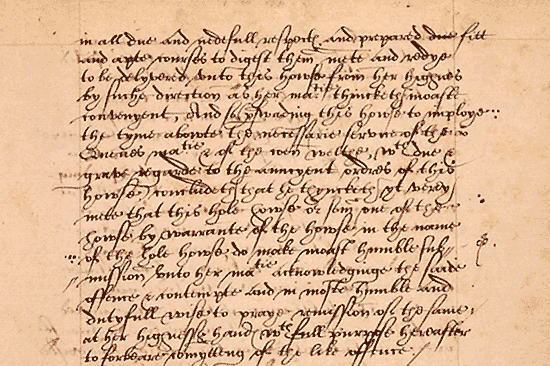 in all due and nedefull respects and prepared due fitt
and apte courses to digest them, mete and redye
to be delyvered unto this howse from her highnes
by suche direction as her matie thincketh moaste
convenyent, And so perswading this howse to imploye
the tyme abowte the necessarie service of the
Quenes matie & of the coen welthe, wth due &
grave regarde to the auncyent ordres of this
howse, concludeth that he thyncketh yt verey
mete that this hole howse or som one of the
howse by warrante of the howse in the name
of the hole howse do make moast humble sub-
mission unto her matie acknowledginge the saide
offence & contempte and in moste humble and
dutyfull wise to praye remission of the same
at her highnes hands wth full purpose hereafter
to forbeare comytting of the like offence.